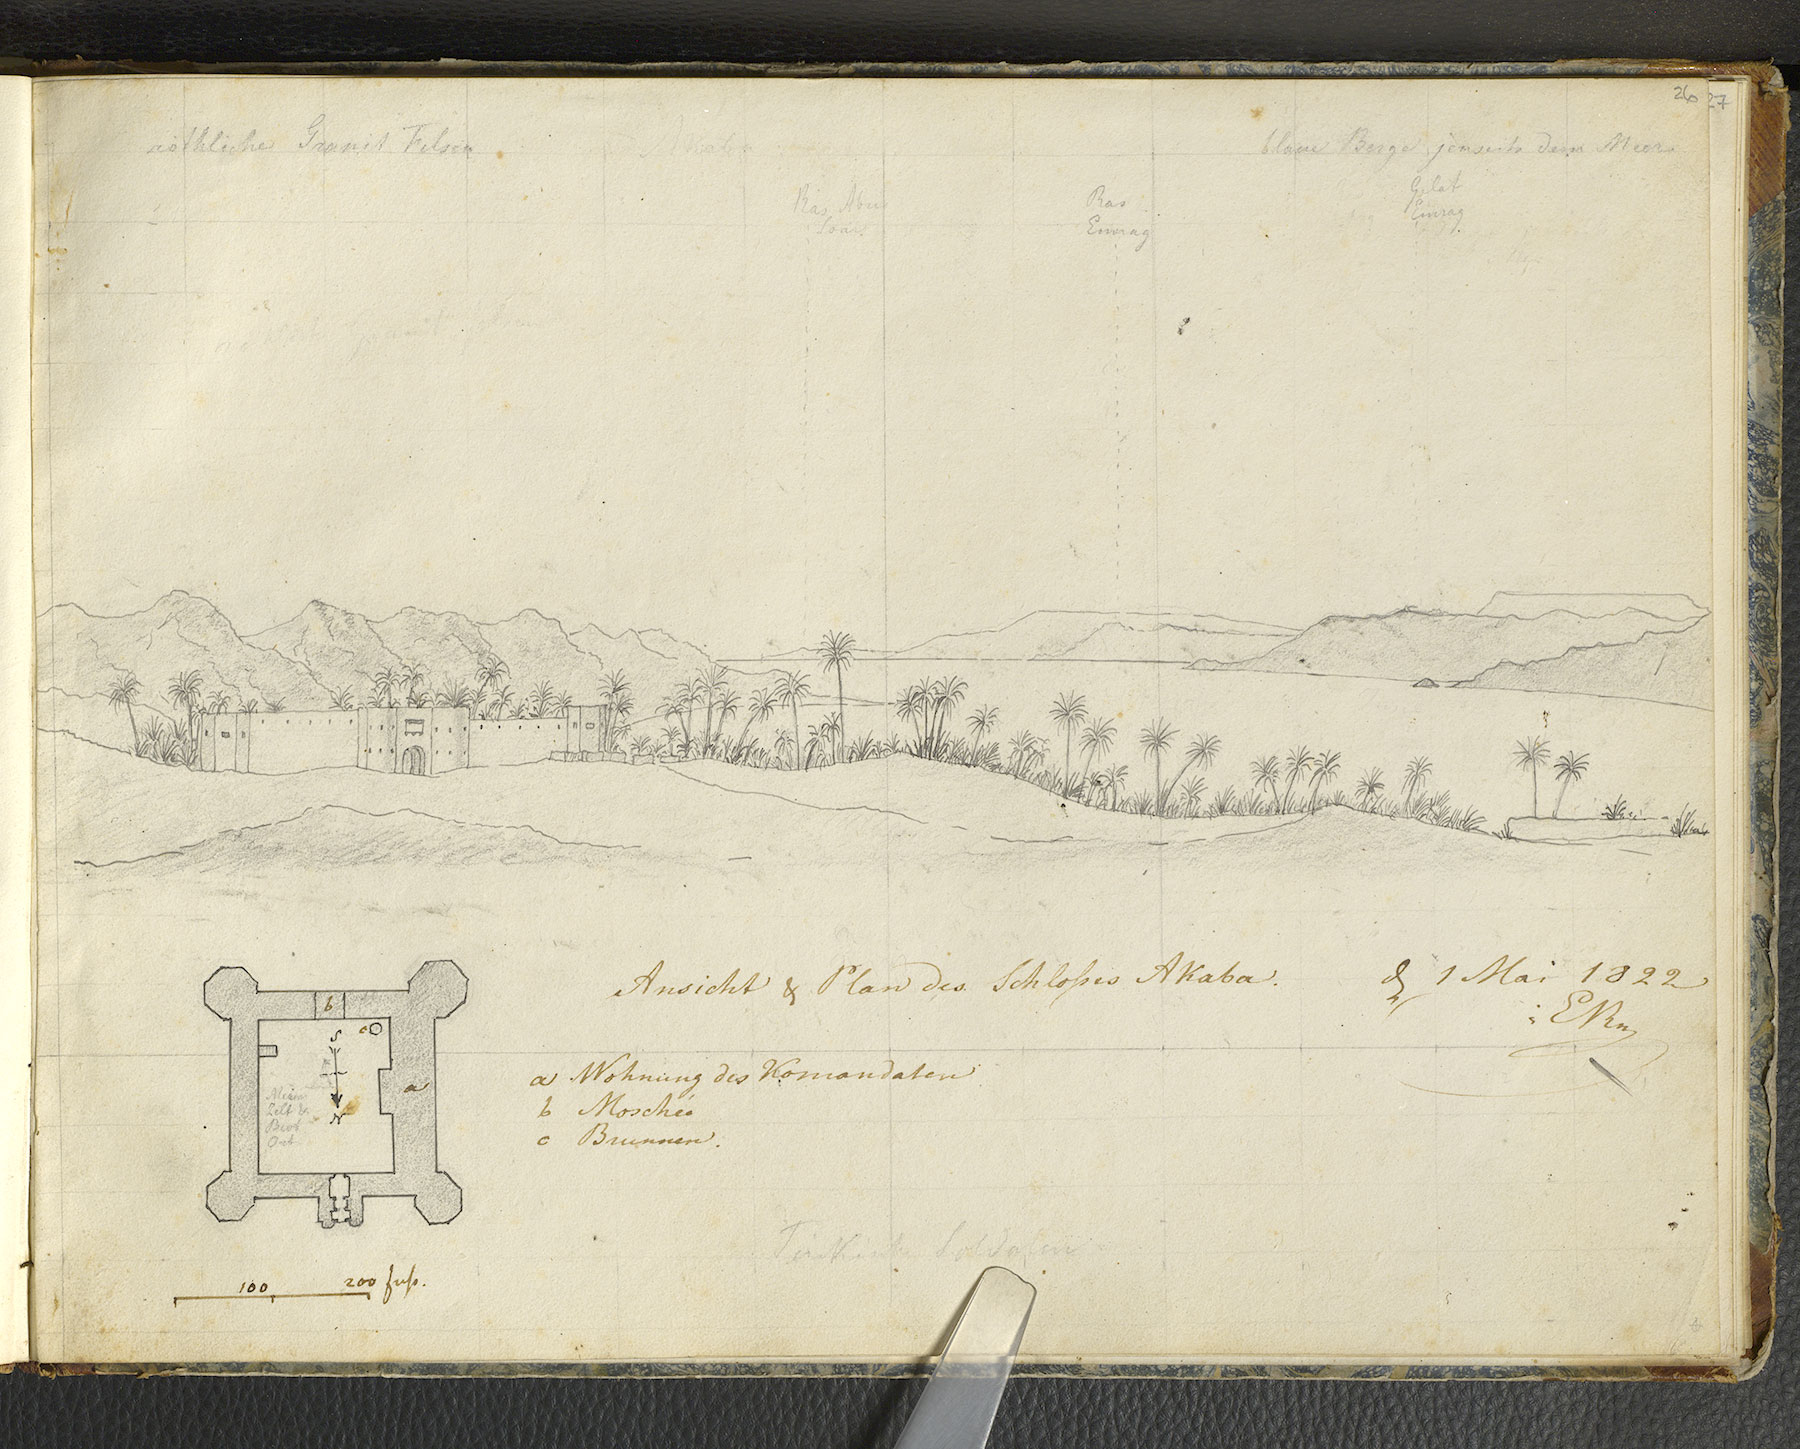 26 27
röthliche Granit Felsen
blaue Berge jenseits dem Meere
Ras Abu
Ras
Emrag
Gelat
Emrag
Ansicht & Plan des Schloßes Akaba.
d 1 Mai 1822
: E R
b
c
S
a
N
Mein
Zelt
Ort
a Wohnung des Komandaten
b Moschée
c Brunnen.
Soldaten
100 200 fuß.